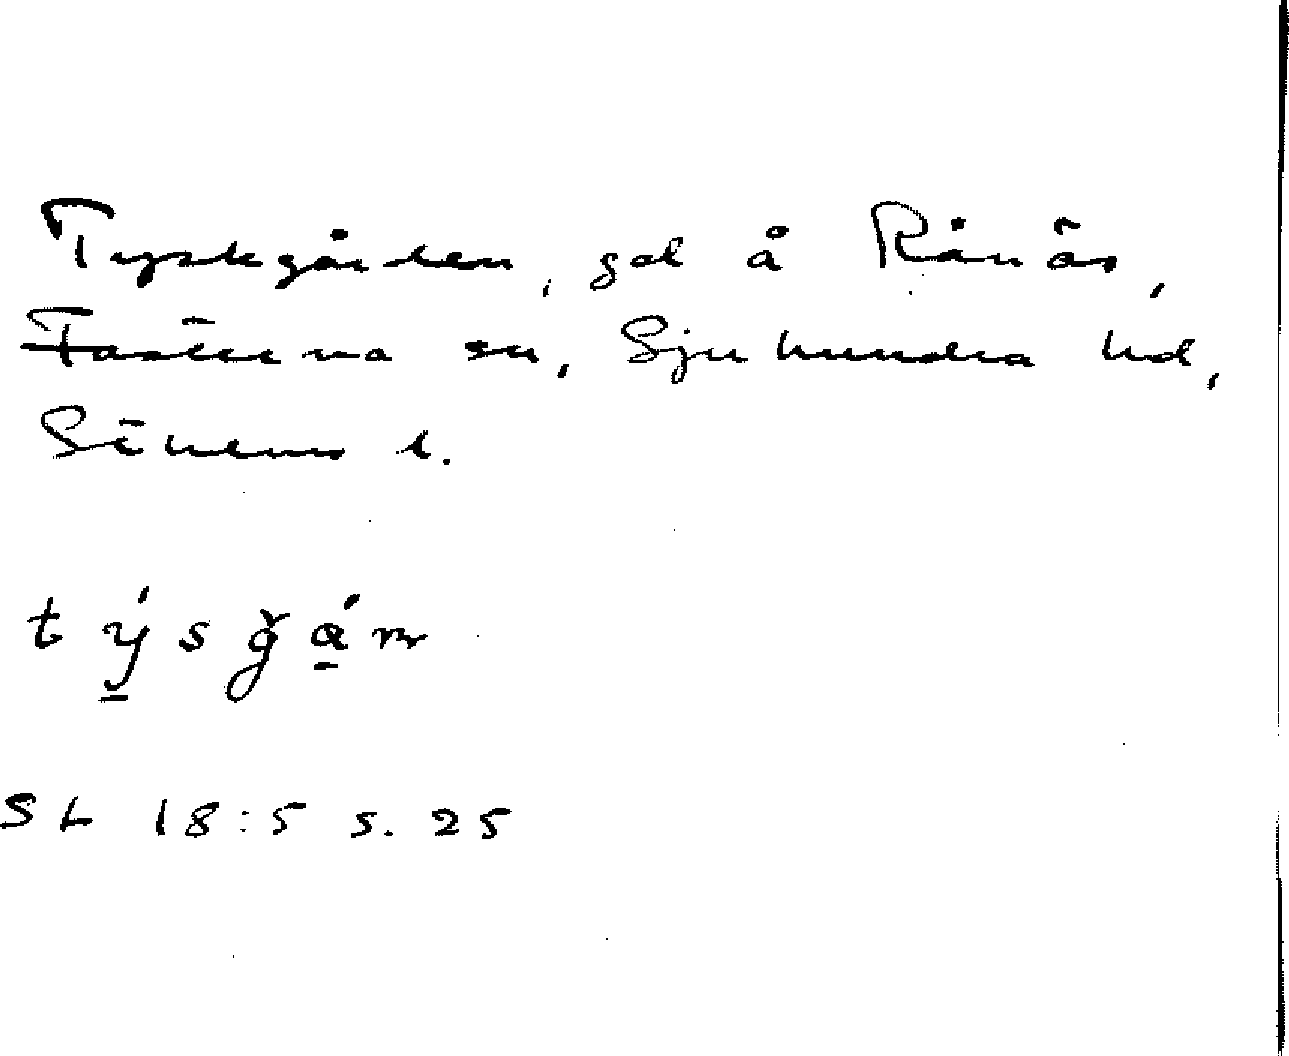 Tyskgården, gd å Rånäs,
Fasterna sn, Sjuhundra hd,
Sthlms l.
tý̱sğá̱ṇ
SL 18:5 s. 25